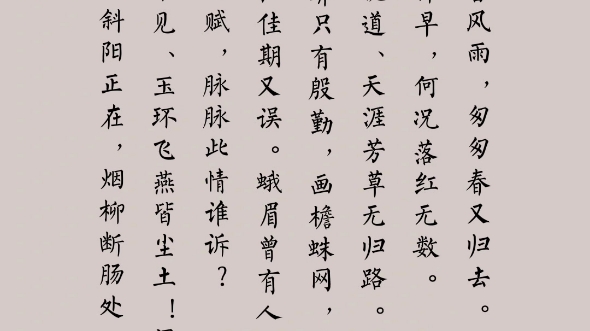 风雨，匆匆春又归去。
早，何况落红无数。
道、天涯芳草无归路。
只有殷勤，画檐蛛网，
佳期又误。蛾眉曾有人
赋，脉脉此情谁诉？
见、玉环飞燕皆尘土！
斜阳正在，烟柳断肠处